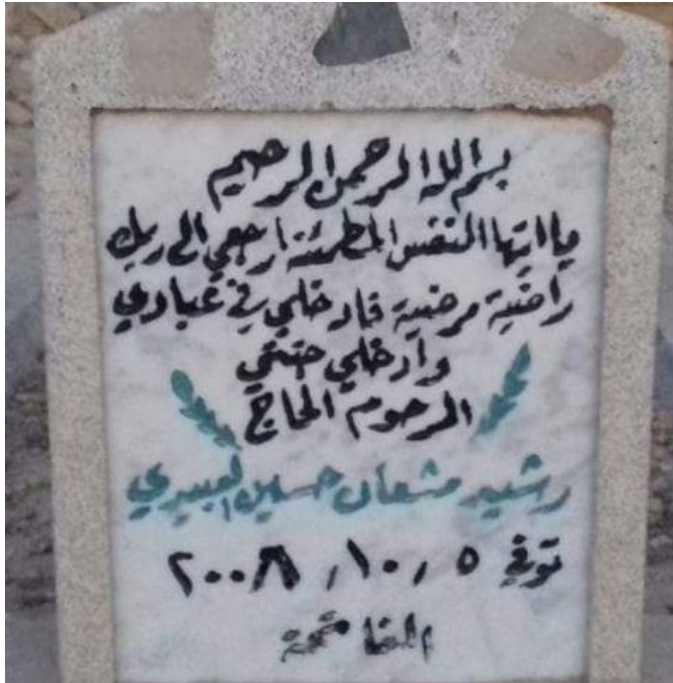 بسم الله الرحمن الرحيم
يا ايتها النفس المطمئنة ارجعي الى ربك
راضية مرضية فادخلي في عبادي
وأدخلي جنتي
المرحوم الحاج
رشيد مشعان حسين العبيدي
توفي ٥ / ١٠ / ٢٠٠٨
الفاتحة